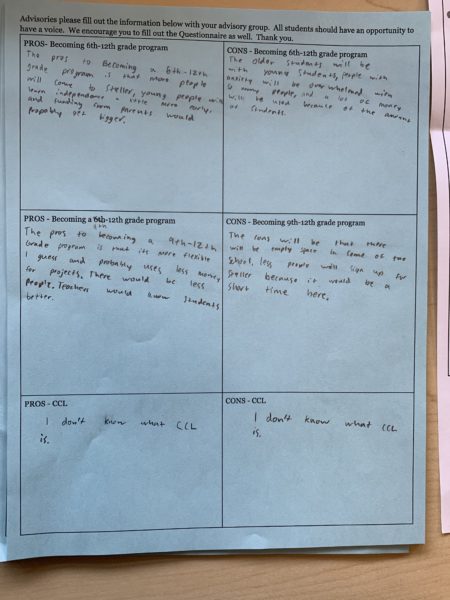 Advisories please fill out the information below with your advisory group. All students should have an opportunity to
have a voice. We encourage you to fill out the Questionnaire as well. Thank you.
PROS- Becoming 6th-12th grade program
The pros to Becoming a 6th-12th
grade program is that more people
will come to Steller, young people will
learn independence a little more early,
and funding from parents would
Propably get bigger.
CONS - Becoming 6th-12th grade program
The older students will be
with young students, people with
anxiety will be overwhelmed with
so many people, and a lot of money
will be used because of the amount
of students.
PROS - Becoming a 9th-12th grade program
The pros to becoming a 9th-12th
Grade program is that its more flexible
I guess and probably uses less money
for projects. There would be less
People. Teachers would know students
better.
CONS - Becoming 9th-12th grade program
The cons will be that there
will be empty space in some of the
School, less people will sign up for
Steller because it would be a
short time here.
PROS - CCL
I don't know what CCL
is.
CONS - CCL
I don't know what CCL
is.